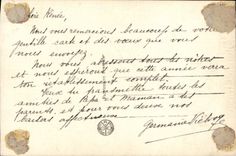 Chère Renée,
Nous vous remercions beaucoup de votre
gentille carte et des vœux que vous
nous envoyez.
Nous vous adressons tous les nôtres
et nous espérons que cette année verra
ton rétablissement complet.
Veux-tu transmettre toutes les
amitiés de Papa et Maman à tes
parents et pour vous deux nos
baisers affectueux
Germaine